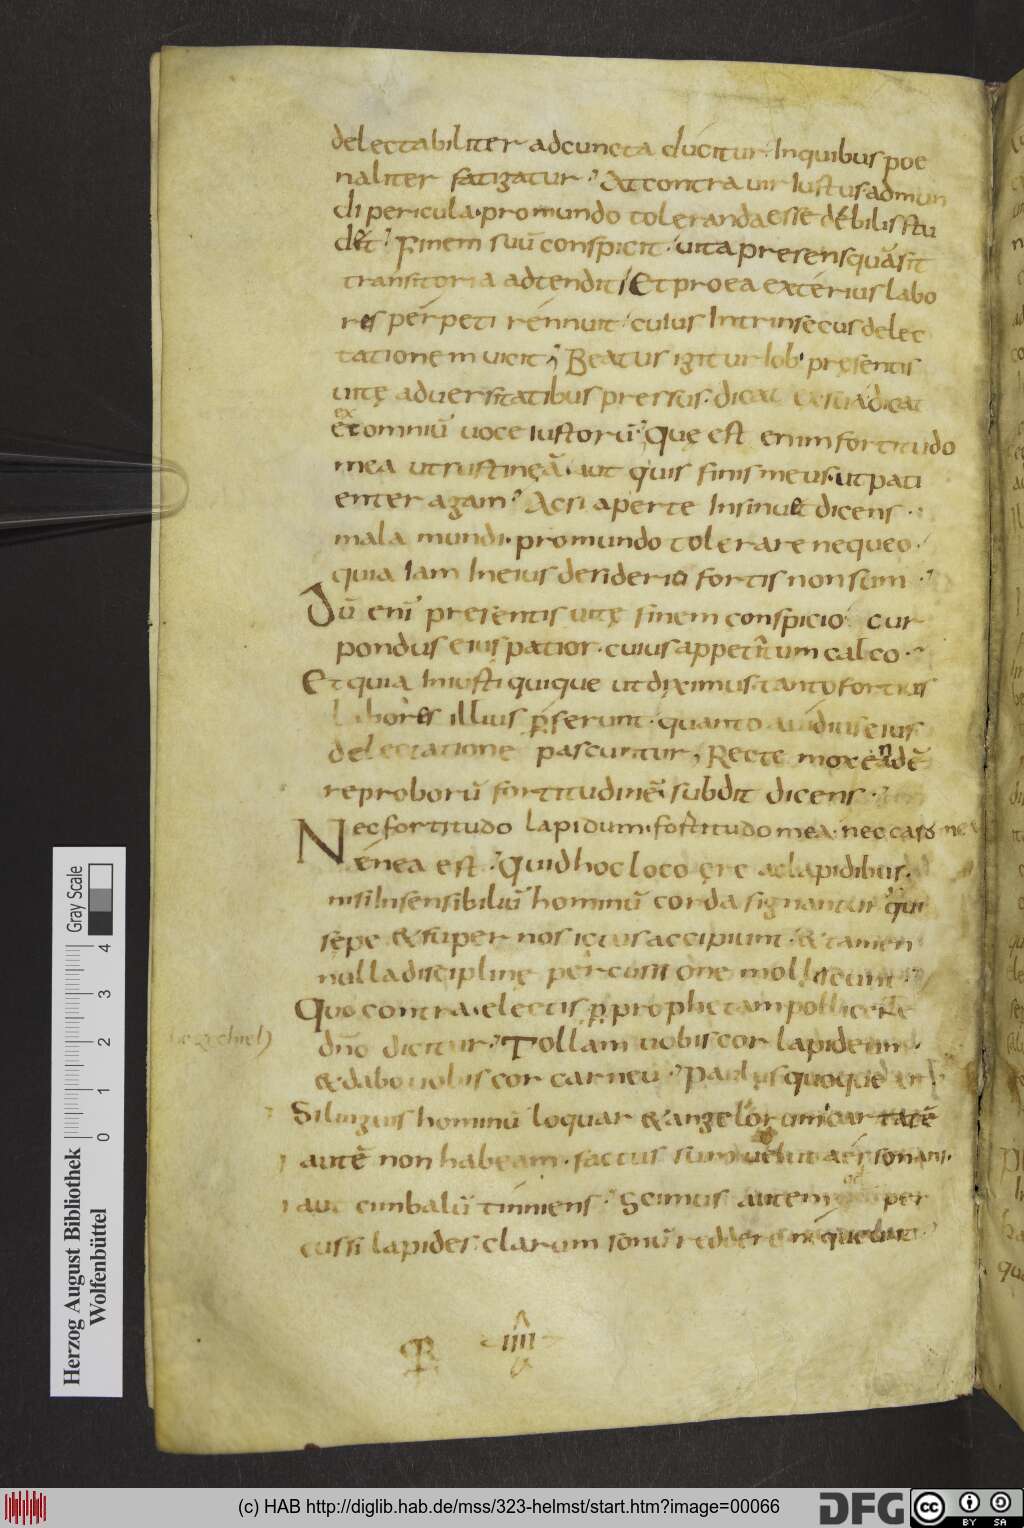 delectabiliter adcuncta ducitur. Inquibus poe
naliter fatigatur? At contra uir iustus admun
di pericula. pro mundo toleranda esse debilis stu
det? Finem suū conspicit. uita presens quā sit
transitoria adtendit. Et pro ea exterius labo
res perpeti rennuit. cuius Intrinsecus delec
tationem uicit; Beatus igitur Iob presentis
uitę aduersitatibus pressus. dicat dicat
ex omniū uoce iustorū. Quę est enim fortitudo
mea ut sustineā. aut quis finis meus. ut pati
enter agam? Ac si aperte Insinuet dicens.
mala mundi. pro mundo tolerare nequeo.
quia Iam In eius desiderio fortis non sum.
Dū enī presentis uitę finem conspicio. cur
pondus eius patior. cuius appetitum calco.
Et quia Iniusti quique ut diximus. tanto fortius
labores illius pferunt. quanto auidius eius
delectatione pascuntur; Recte mox eandē
reproborū fortitudinē. subdit dicens.
Nec fortitudo lapidum. fortitudo mea. nec caro mea
enea est. Quid hoc loco ęre ac lapidibus.
nisi Insensibiliū hominū corda signantur qui
sępe & super nos ictus accipiunt. & tamen
nulla disciplinę percussione mollescunt.
Quo contra. electis p prophetam pollicente
dn̄o dicitur. Tollam uobis cor lapideum.
hezechiel
& dabo uobis cor carneū. Paulus quoque
Si linguis hominū loquar & angelor caritatē
autē non habeam. factus sum uelut aes sonans.
aut cimbalū tinniens. Scimus autem per
cussi lapides. clarum sonū reddere nequeunt.
IIII
Gray Scale
0 1 2 3 4
Herzog August Bibliothek
Wolfenbüttel
(c) HAB http://diglib.hab.de/mss/323-helmst/start.htm?image=00066
DFG
cc BY SA